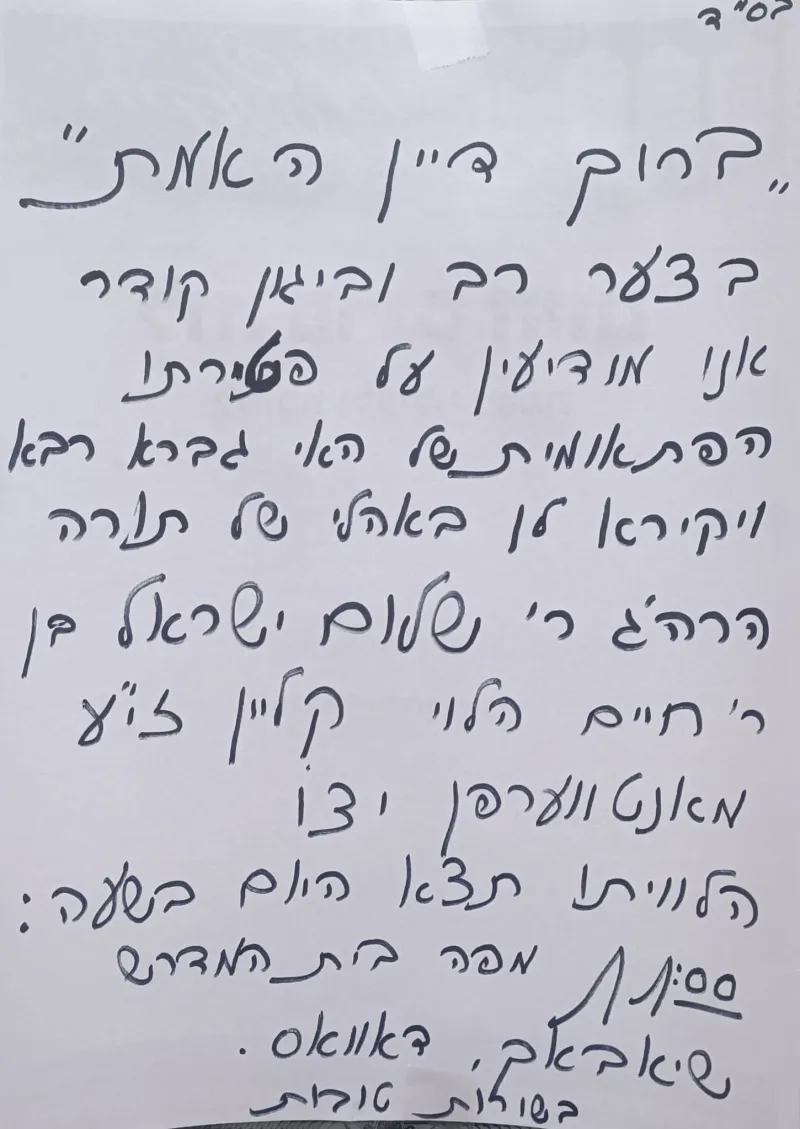 בס"ד
"ברוך דיין האמת"
בצער רב וביגון קודר
אנו מודיעין על פטירתו
הפתאומית של האי גברא רבא
ויקירא לן באהלי של תורה
הרה'ג ר' שלום ישראל בן
ר' חיים הלוי קליין ז"ע
מאנטווערפן יצו
הלוויתו תצא היום בשעה:
11:00 מפה בית המדרש
שיאבאך, דאוואס.
בשורות טובות